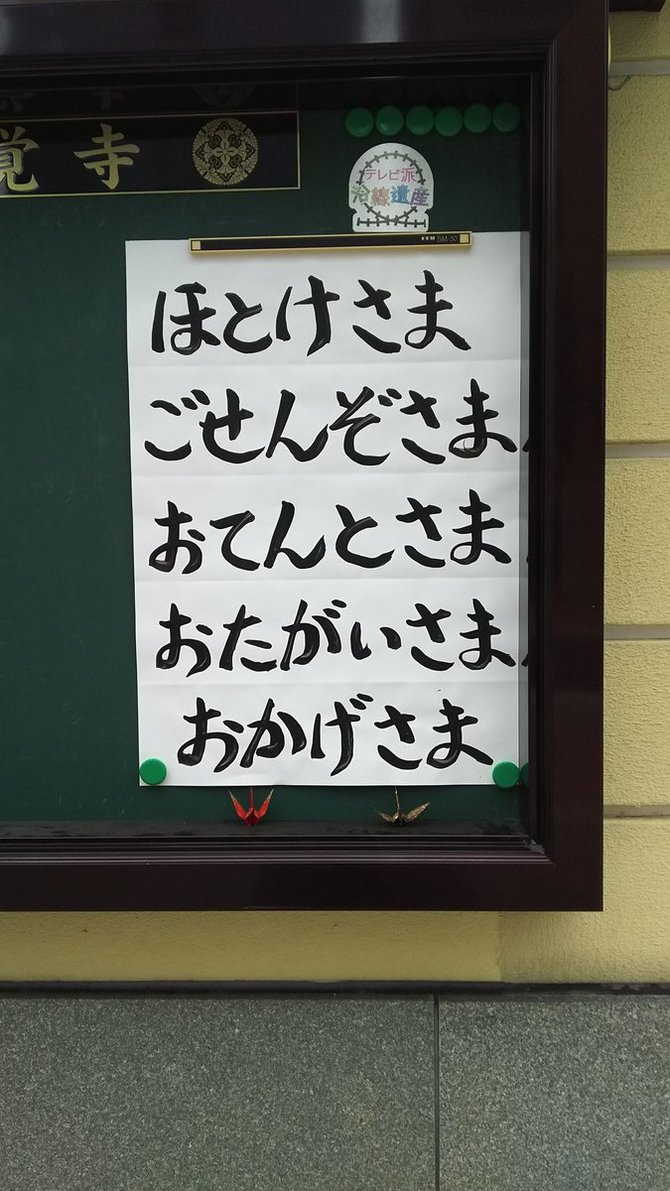 覚寺
テレビ派
沿線遺産
ほとけさま
ごせんぞさま
おてんとさま
おたがいさま
おかげさま